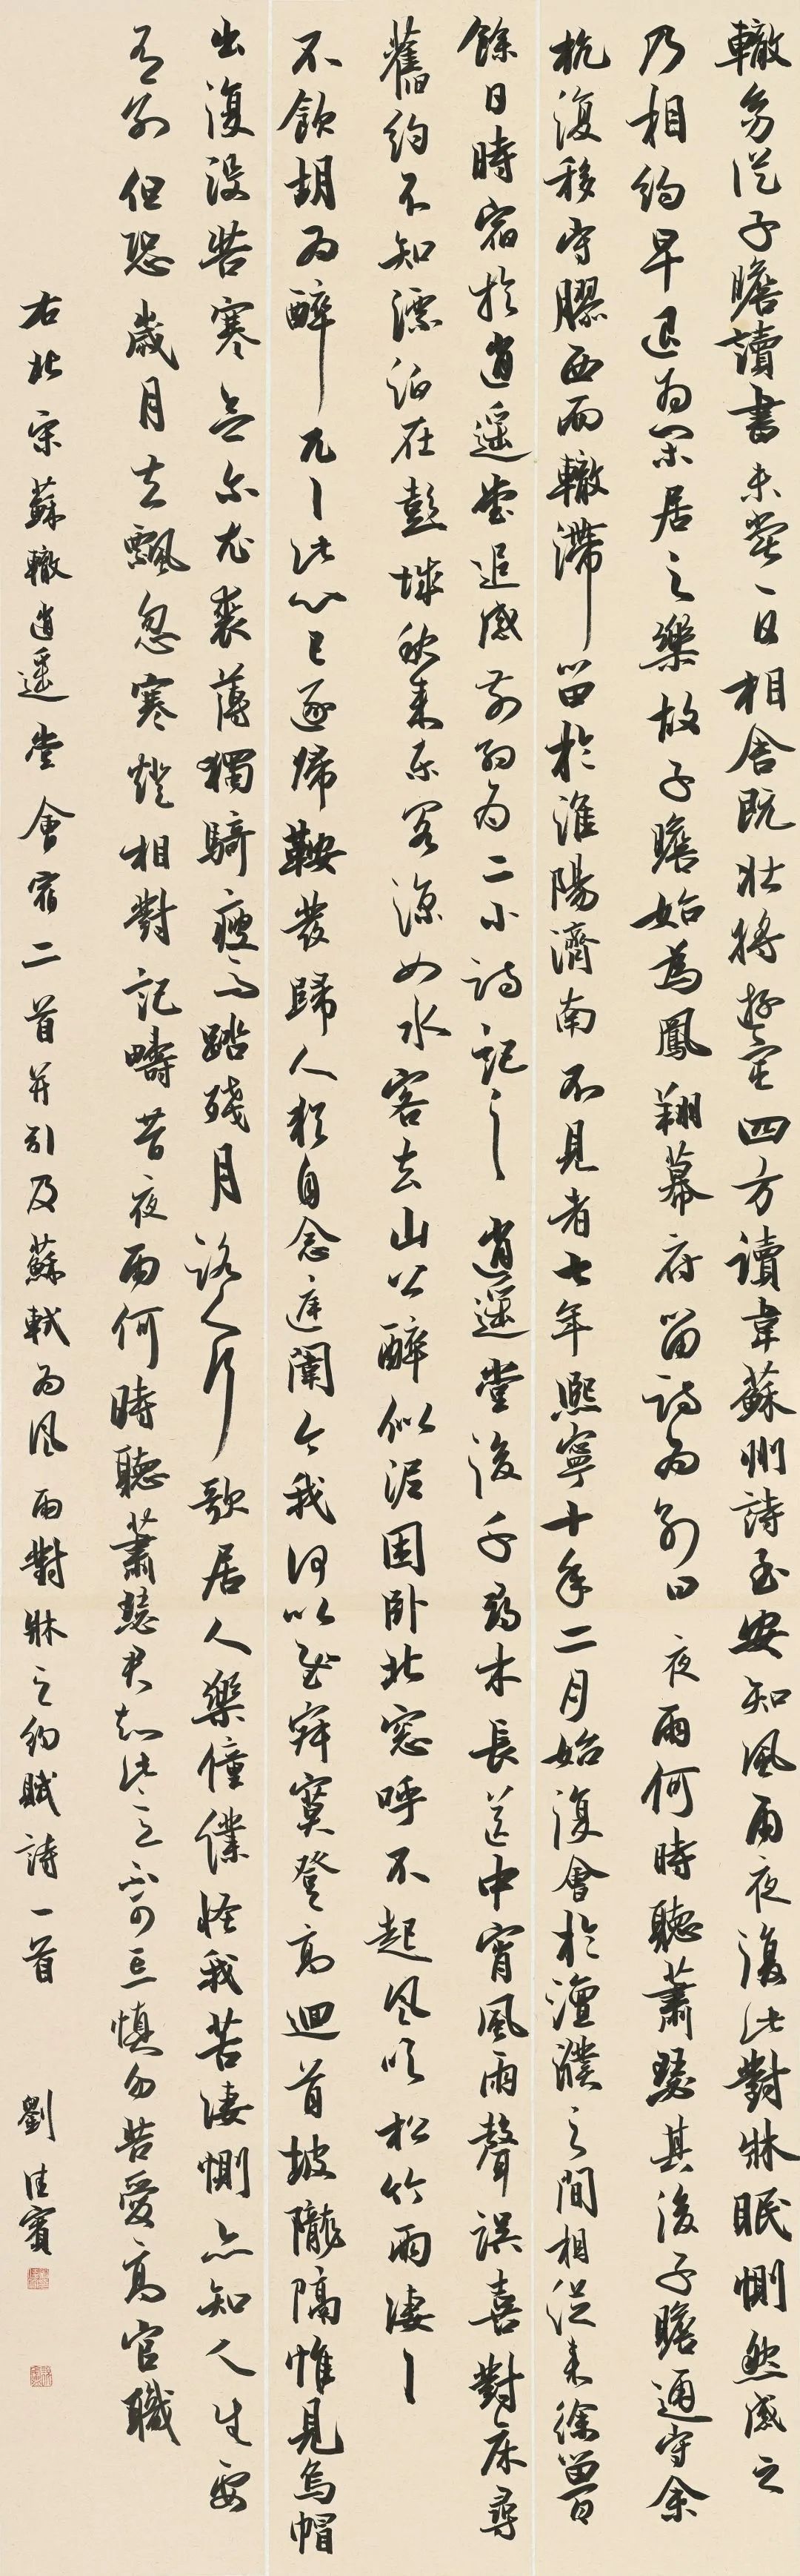 轍幼從子瞻讀書未嘗一日相舍既壯將遊宦四方讀韋蘇州詩至安知風雨夜復此對牀眠惻然感之
乃相約早退為閑居之樂故子瞻始為鳳翔幕府留詩為別曰夜雨何時聽蕭瑟其後子瞻通守余
杭復移守膠西而轍滯留於淮陽濟南不見者七年熙寧十年二月始復會於澶濮之間相從來徐留百
餘日時宿於逍遙堂追感前約為二小詩記之逍遙堂後千尋木長送中宵風雨聲誤喜對床尋
舊約不知漂泊在彭城秋來東閣涼如水客去山公醉似泥困臥北窗呼不起風吹松竹雨淒〻
不飲胡為醉兀〻此心已逐歸鞍發歸人猶自念庭闈今我何以慰寂寞登高迴首坡隴隔惟見烏帽
出復沒苦寒念爾衣裘薄獨騎瘦馬踏殘月路人行歌居人樂僮僕怪我苦淒惻亦知人生要
有別但恐歲月去飄忽寒燈相對記疇昔夜雨何時聽蕭瑟君知此意不可忘慎勿苦愛高官職
右北宋蘇轍逍遙堂會宿二首并引及蘇軾為風雨對牀之約賦詩一首 劉佳賓